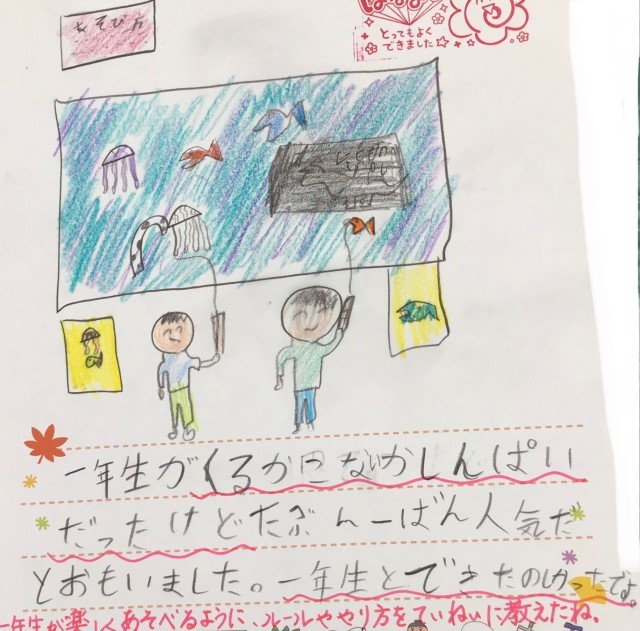 あそび方
とってもよく
できました
一年生がくるかこないかしんぱい
だったけどたぶん一ばん人気だ
とおもいました。一年生とできたのしかったです。
一年生が楽しくあそべるように、ルールややり方をていねいに教えたね。